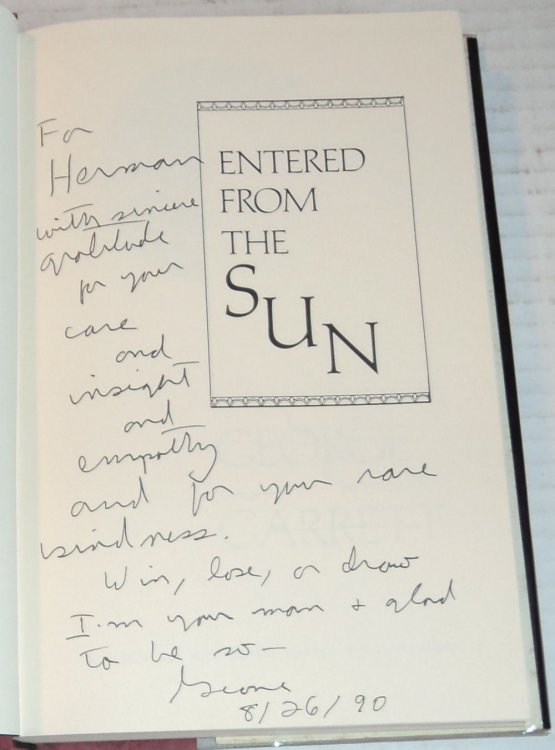 For
Herman
with sincere
gratitude
for your
care
and
insight
and
empathy
and for your rare
kindness.
Win, lose, or draw
I'm your man + glad
to be so—
George
8/26/90
ENTERED
FROM
THE
SUN
GEORGE
GARRETT